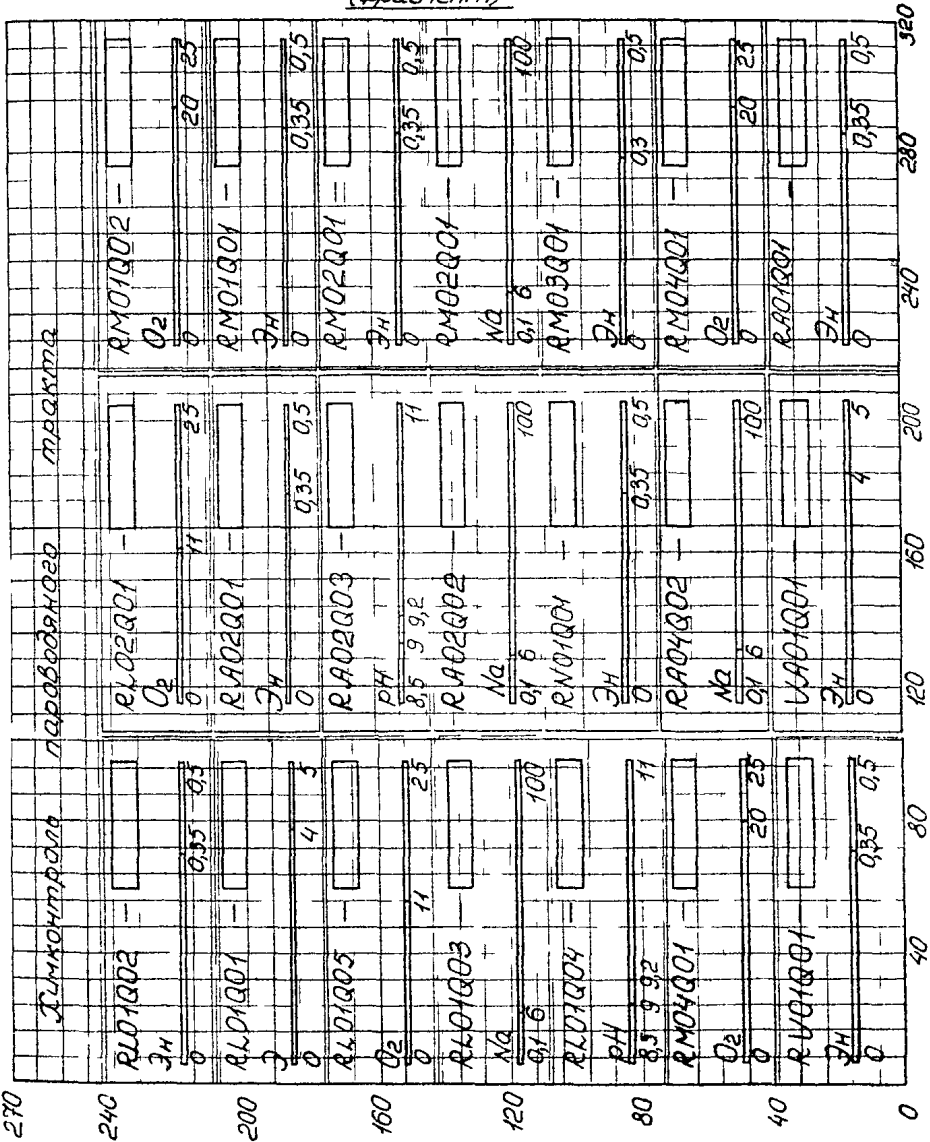 (фрагмент)
Химконтроль пароводяного тракта
270
240
200
160
120
80
40
0
RL01Q02 —
Эн
0 0,35 0,5
RL01Q01 —
Э
0 4 5
RL01Q05 —
O2
0 11 25
RL01Q03 —
Na
0,1 6 100
RL01Q04 —
pH
8,5 9 9,2 11
RM04Q01 —
O2
0 20 25
RV01Q01 —
Эн
0 0,35 0,5
RL02Q01 —
O2
0 11 25
RA02Q01 —
Эн
0 0,35 0,5
RA02Q03 —
pH
8,5 9 9,2 11
RA02Q02 —
Na
0,1 6 100
RN01Q01 —
Эн
0 0,35 0,5
RA04Q02 —
Na
0,1 6 100
UA01Q01 —
Эн
0 4 5
RM01Q02 —
O2
0 20 25
RM01Q01 —
Эн
0 0,35 0,5
RM02Q01 =
Эн
0 0,35 0,5
RM02Q01 —
Na
0,1 6 100
RM03Q01 —
Эн
0 0,3 0,5
RM04Q01 —
O2
0 20 25
RA01Q01 —
Эн
0 0,35 0,5
40 80 120 160 200 240 280 320